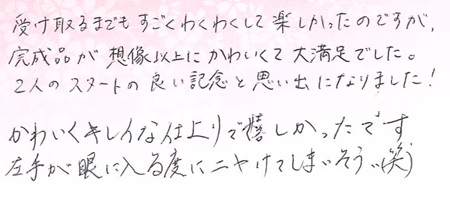 受け取るまでもすごくわくわくして楽しかったのですが,
完成品が想像以上にかわいくて大満足でした。
2人のスタートの良い記念と思い出になりました!
かわいくキレイな仕上りで嬉しかったです
左手が眼に入る度にニヤけてしまいそう(笑)